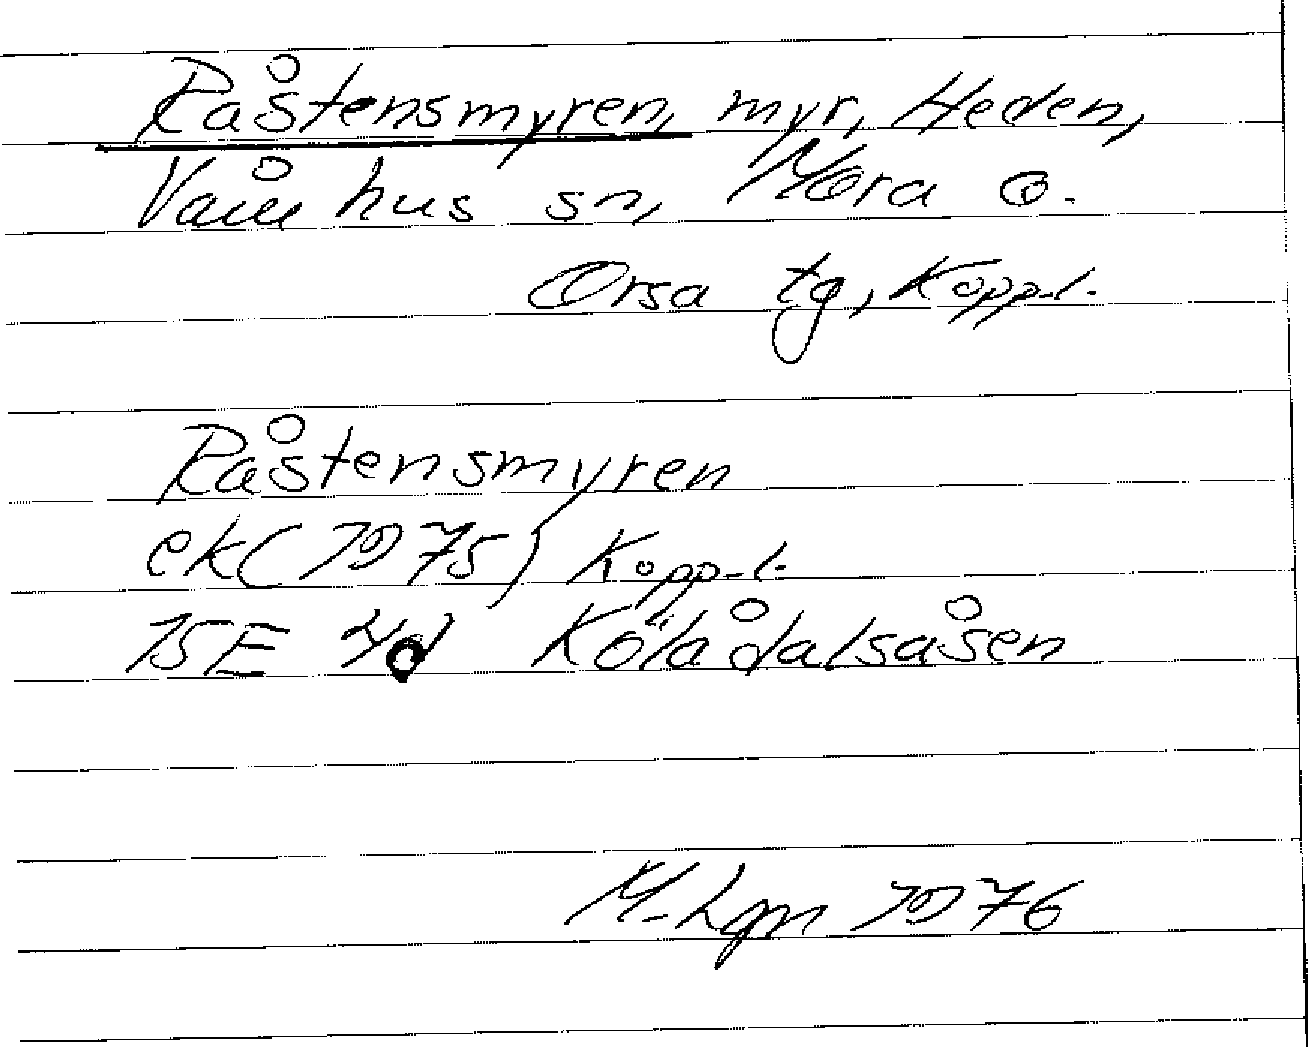 Råstensmyren, myr, Heden,
Våmhus sn, Mora o.
Orsa tg, Kopp.l.
Råstensmyren
ek (1975) Kopp.l.
15E 4d Kölaådalsåsen
M. Lgn 1976